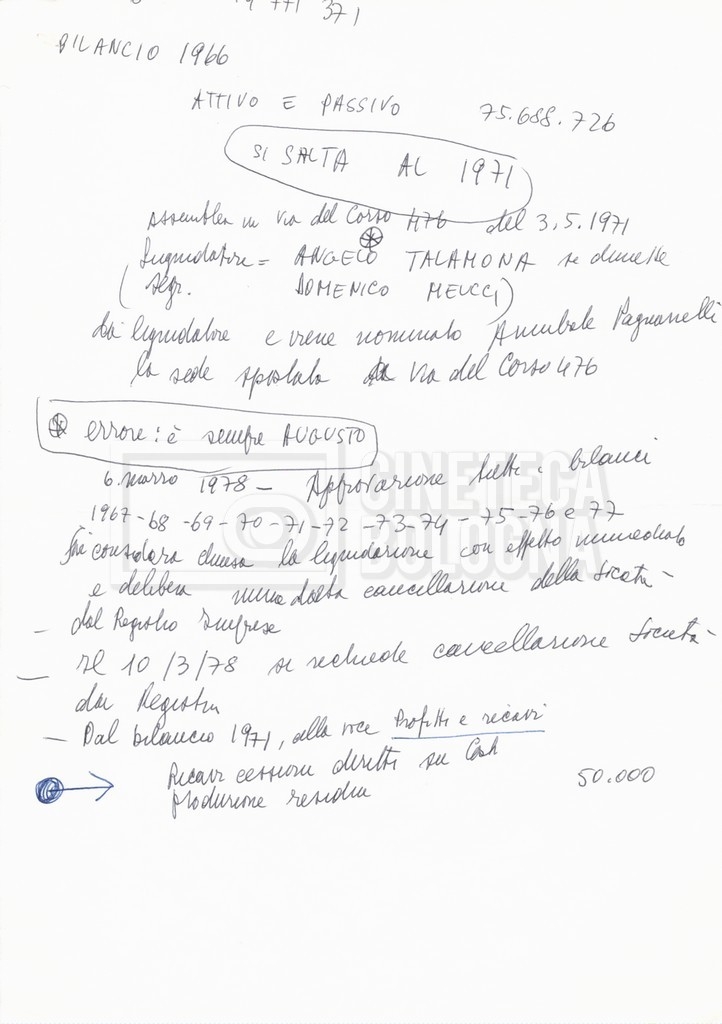 19 771 371
BILANCIO 1966
ATTIVO E PASSIVO 75.688.726
SI SALTA AL 1971
Assemblea in via del Corso 476 del 3.5.1971
Liquidatore = ANGELO TALAMONA si dimette
(Segr. DOMENICO MEUCCI)
da liquidatore e viene nominato Annibale Pagnanelli
la sede spostata da via del Corso 476
errore: è sempre AUGUSTO
6. marzo 1978 - Approvazione tutti i bilanci
1967-68-69-70-71-72-73-74-75-76 e 77
Si considera chiusa la liquidazione con effetto immediato
e delibera immediata cancellazione della società
- dal Registro Imprese
- Il 10/3/78 si richiede cancellazione Società
dai Registri
- Dal bilancio 1971, alla voce Profitti e ricavi
Ricavi cessioni diritti su
produzione residui 50.000
CINETECA
BOLOGNA